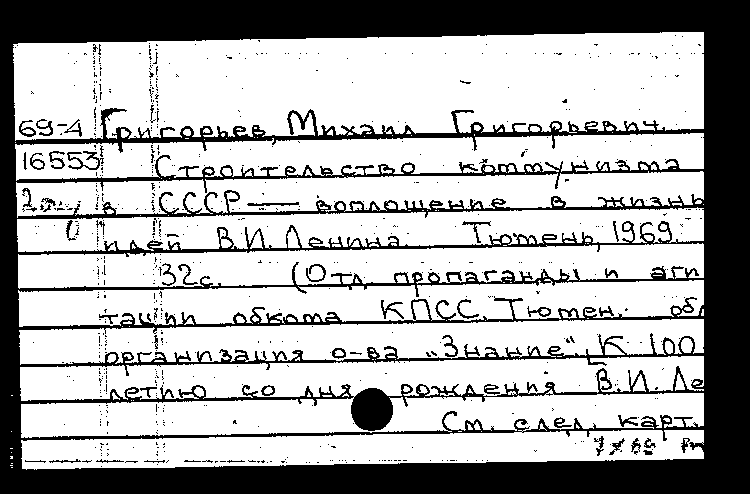 69-4 Григорьев, Михаил Григорьевич.
16553 Строительство коммунизма
в СССР — воплощение в жизнь
идей В.И. Ленина. Тюмень, 1969.
32с. (Отд. пропаганды и аги
тации обкома КПСС. Тюмен. обл
организация о-ва „Знание“, К 100
летию со дня рождения В.И. Ле
См. след. карт.